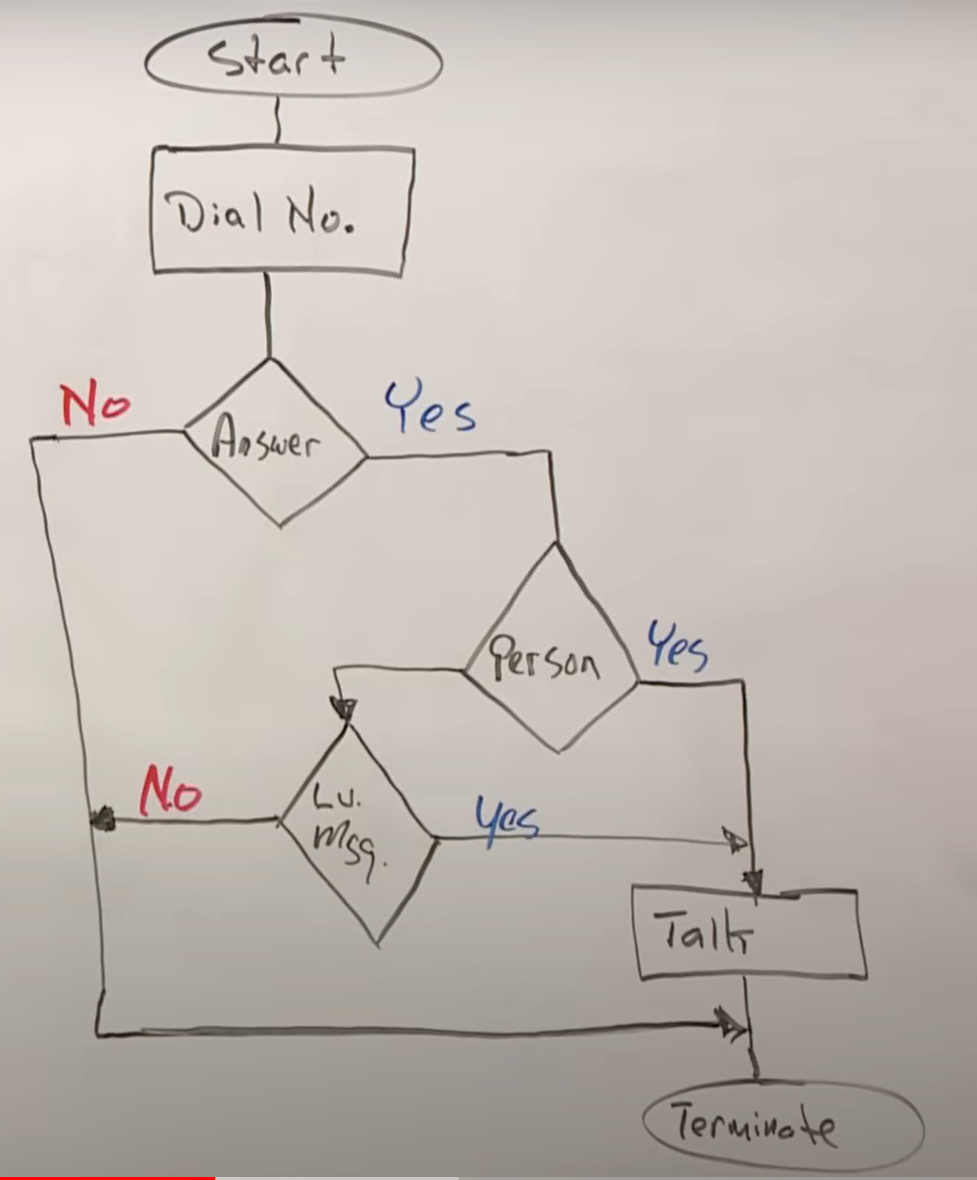 Start
Dial No.
No
Answer
Yes
Person
Yes
No
Lv.
Msg.
Yes
Talk
Terminate